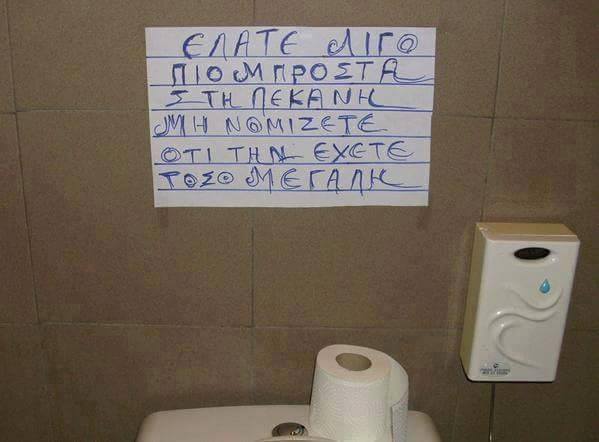 ΕΛΑΤΕ ΛΙΓΟ
ΠΙΟ ΜΠΡΟΣΤΑ
ΣΤΗ ΛΕΚΑΝΗ
ΜΗ ΝΟΜΙΖΕΤΕ
ΟΤΙ ΤΗΝ ΕΧΕΤΕ
ΤΟΣΟ ΜΕΓΑΛΗ